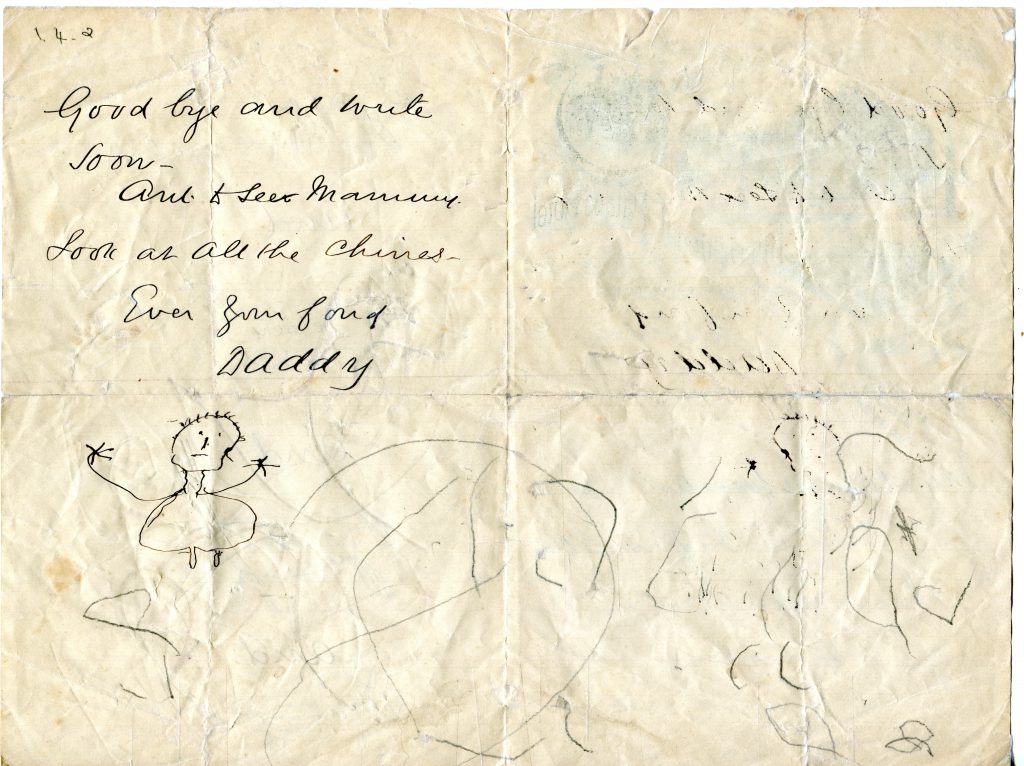 1.4.2
Good bye and write
Soon -
and to see Mammy.
Look at all the Chines -
Ever your fond
Daddy